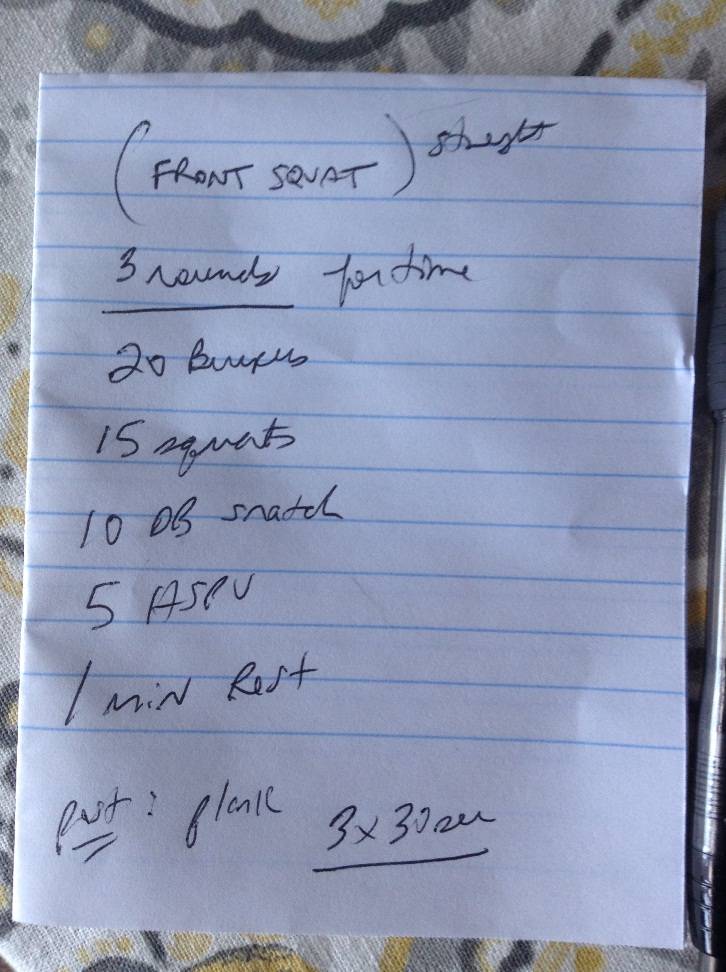 (FRONT SQUAT) strenght
3 rounds for time
20 Burpees
15 squats
10 DB snatch
5 HSPU
1 min Rest
post: plank 3x30sec